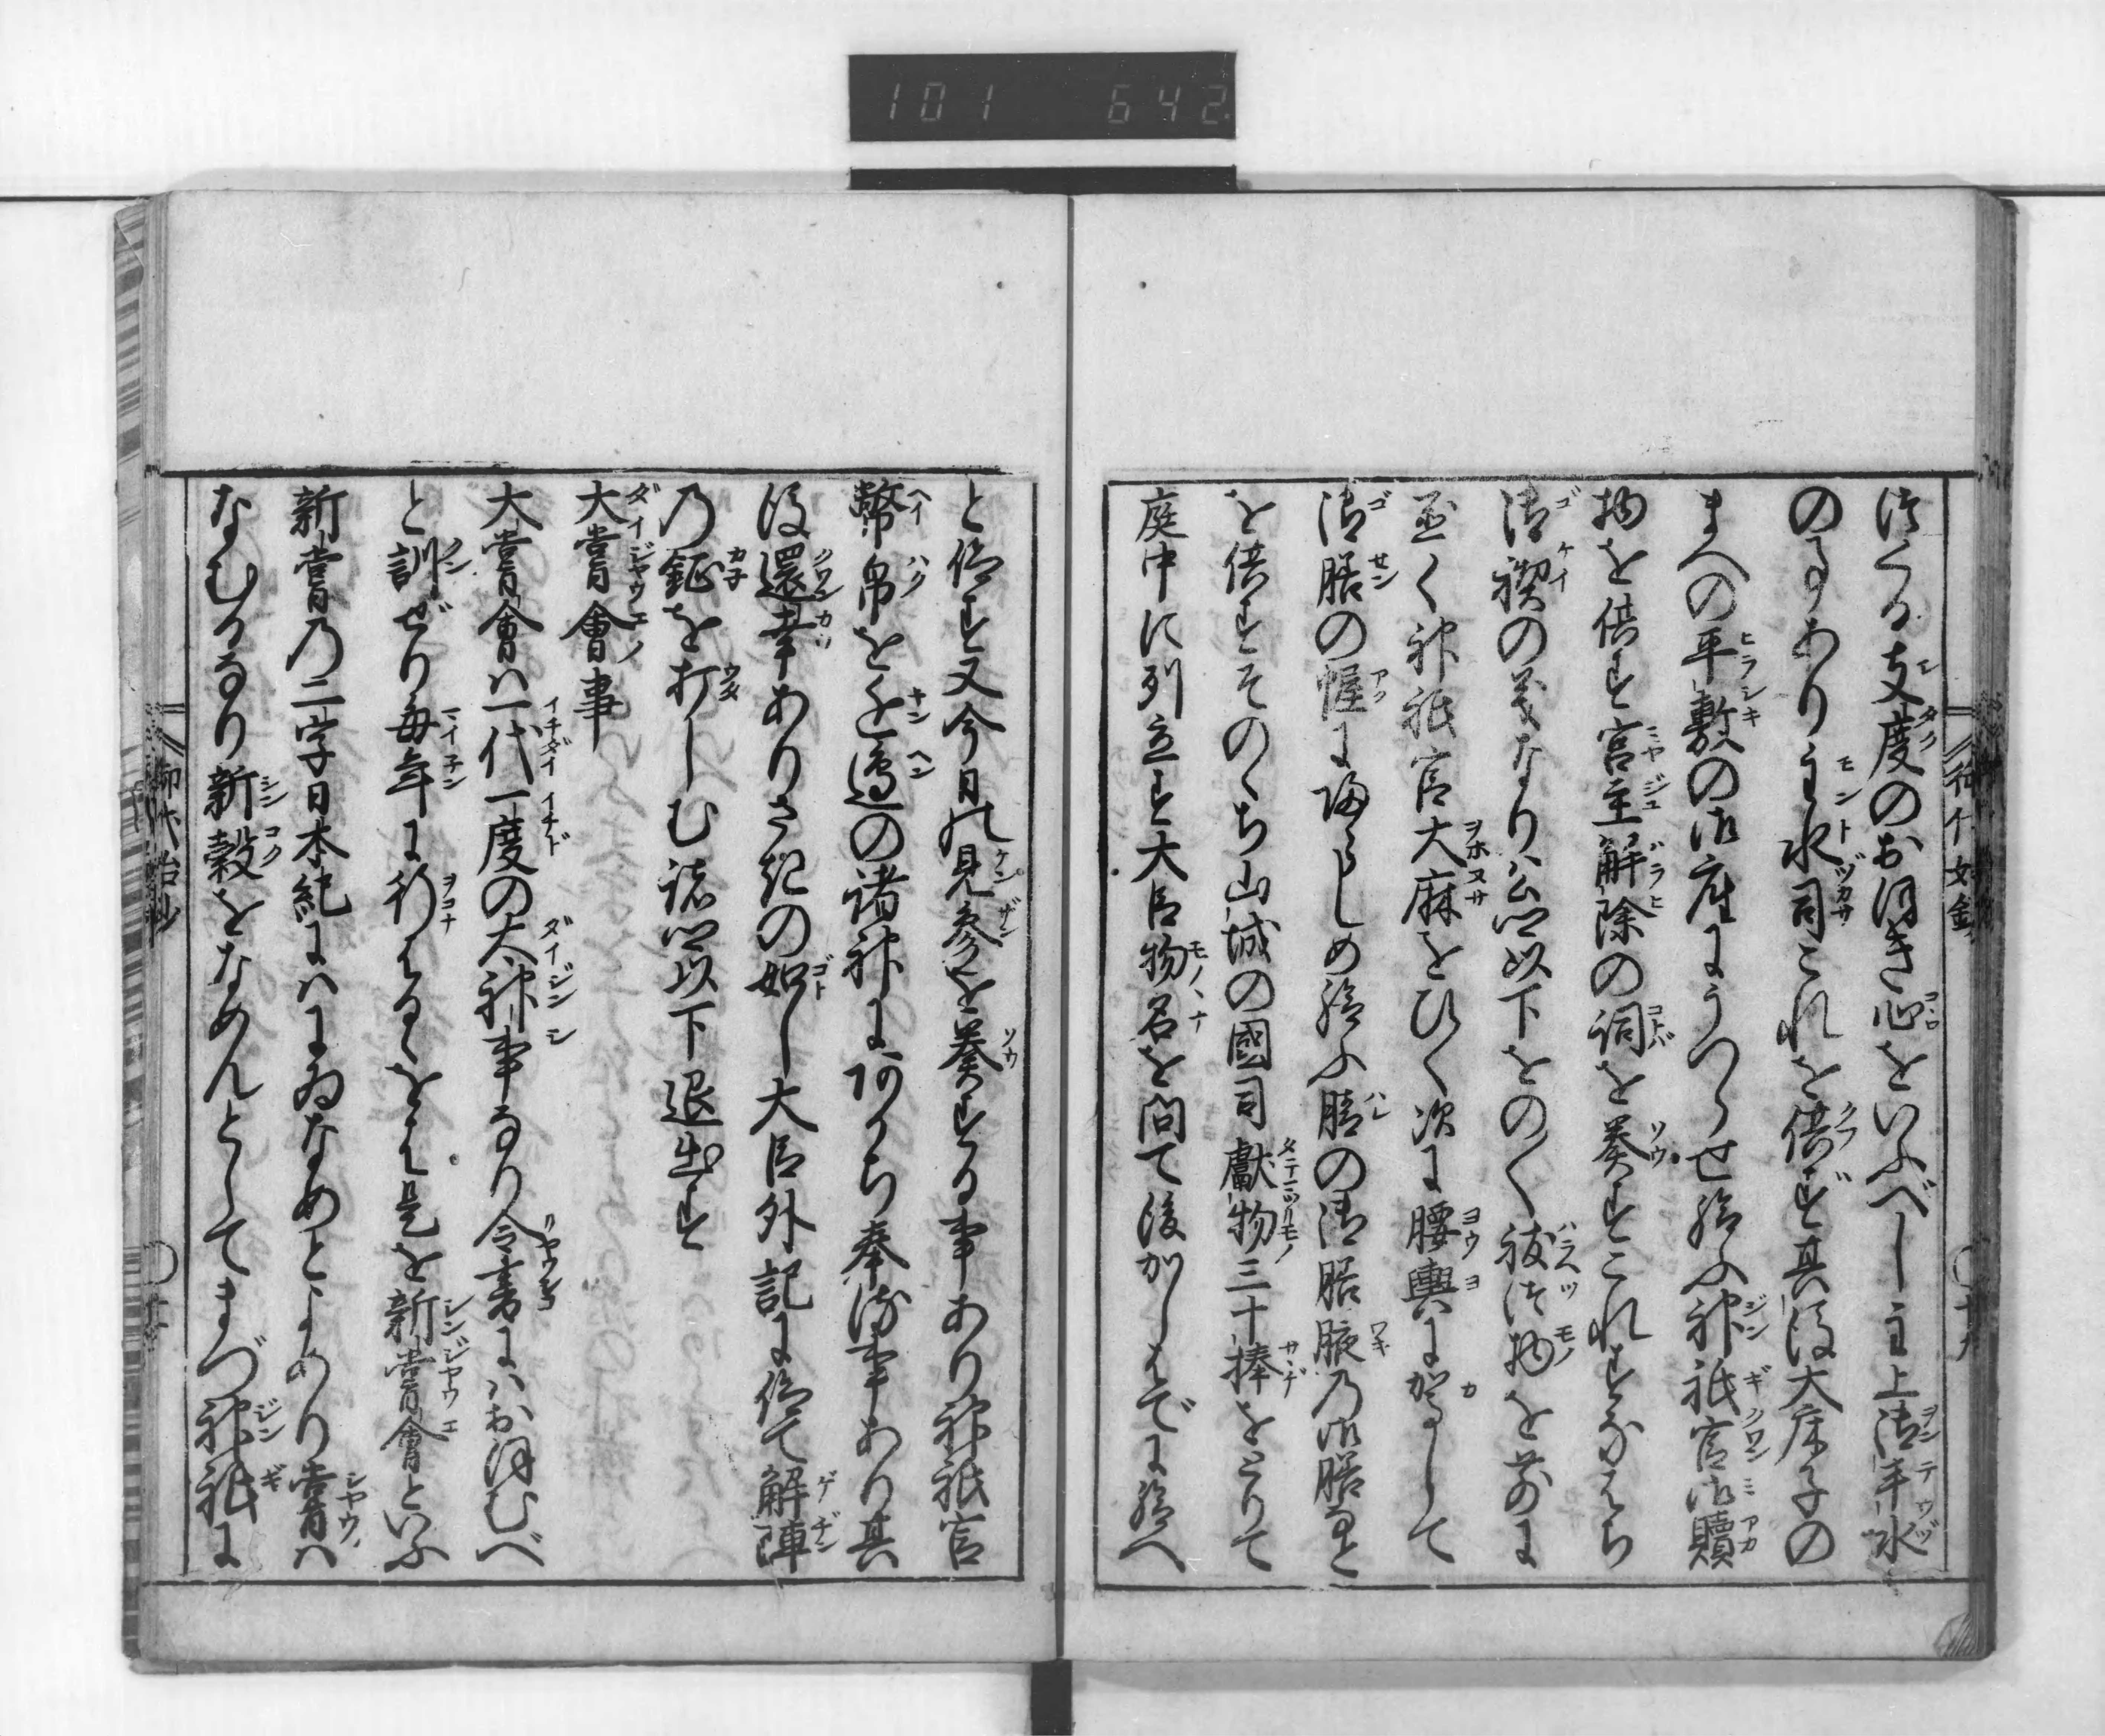 101 642
つくる支度のおほき心をいふべし主上御手水
の事あり主水司これを供ず其後大床子の
まへの平敷の御座にうつらせ給ふ神祇官御贖
物を供ず宮主解除の詞を奏すこれすなはち
御禊の義なり公卿以下をのく祓つ物を前に
置く神祇官大麻をひく次に腰輿に駕して
御膳の幄に帰らしめ給ふ膳の御膳腋の御膳など
を供ずそのゝち山城の國司獻物三十捧をとりて
庭中に列立す大臣物名を問て後かしはでに給へ
と仰す又今日の見參を奏する事あり神祇官
幣帛を近邊の諸神にわかち奉る事あり其
後還幸ありさきの如し大臣外記に仰て解陣
乃鉦を打しむ諸卿以下退出す
大嘗會事
大嘗會ハ一代一度の大神事なり令書にハおほむべ
と訓ぜり毎年に行はるゝをは是を新嘗會といふ
新嘗乃二字日本紀にハにゐなめとよめり嘗ハ
なむるなり新穀をなめんとしてまづ神祇に
御代始抄